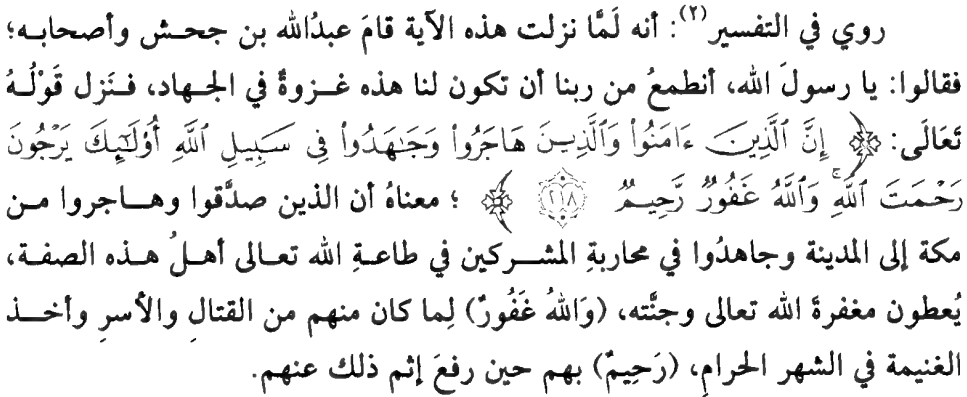 روي في التفسير(٢): أنه لَمَّا نزلت هذه الآية قامَ عبدُالله بن جحش وأصحابه؛
فقالوا: يا رسولَ الله، أنطمعُ من ربنا أن تكون لنا هذه غزوةً في الجهاد، فنَزل قَوْلُهُ
تَعَالَى: ﴿ إِنَّ ٱلَّذِينَ ءَامَنُوا۟ وَٱلَّذِينَ هَاجَرُوا۟ وَجَـٰهَدُوا۟ فِى سَبِيلِ ٱللَّهِ أُو۟لَـٰٓئِكَ يَرْجُونَ
رَحْمَتَ ٱللَّهِ ۚ وَٱللَّهُ غَفُورٌ رَّحِيمٌ ٢١٨ ﴾ ؛ معناهُ أن الذين صدَّقوا وهاجروا من
مكة إلى المدينة وجاهدُوا في محاربةِ المشركين في طاعةِ الله تعالى أهلُ هذه الصفة،
يُعطون مغفرةَ الله تعالى وجنَّته، (وَاللهُ غَفُورٌ) لِما كان منهم من القتالِ والأسرِ وأخذ
الغنيمة في الشهر الحرامِ، (رَحِيمٌ) بهم حين رفعَ إثم ذلك عنهم.